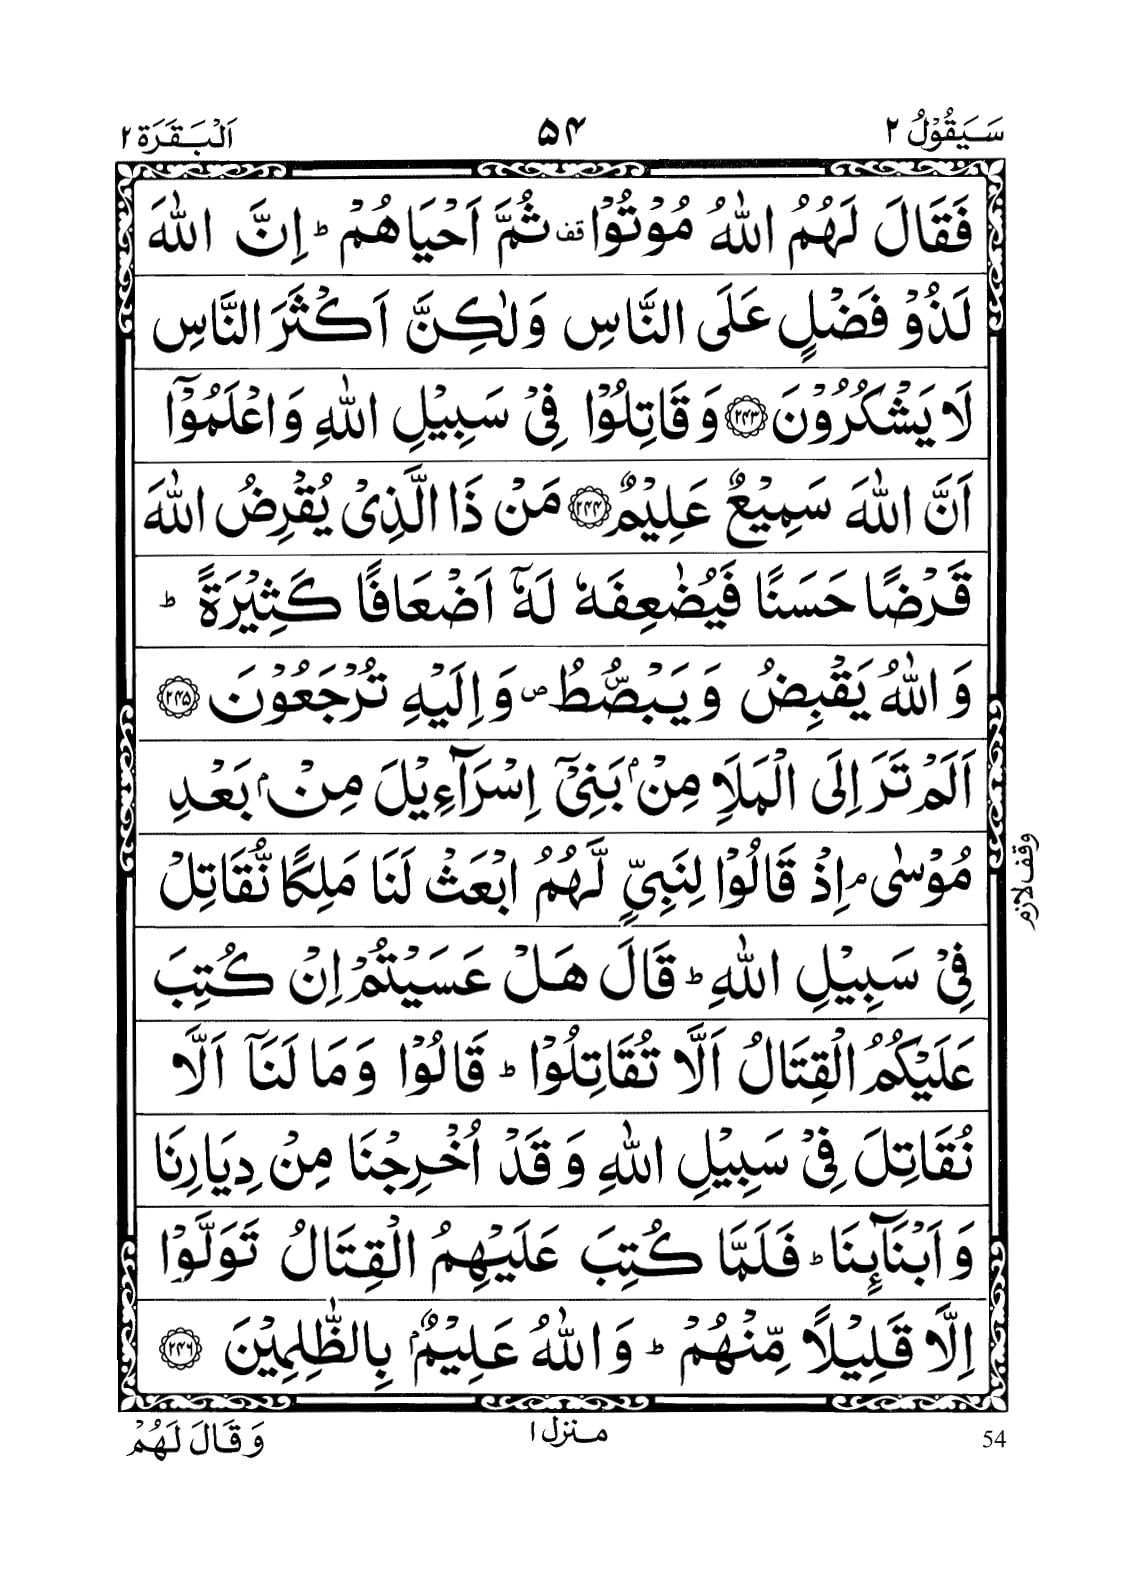 سَيَقُوْلُ ٢
۵۴
اَلْبَقَرَة ٢
فَقَالَ لَهُمُ اللّٰهُ مُوْتُوْا قف ثُمَّ اَحْيَاهُمْ ؕ اِنَّ اللّٰهَ
لَذُوْ فَضْلٍ عَلَى النَّاسِ وَلٰكِنَّ اَكْثَرَ النَّاسِ
لَا يَشْكُرُوْنَ ﴿۲۴۳﴾ وَقَاتِلُوْا فِيْ سَبِيْلِ اللّٰهِ وَاعْلَمُوْۤا
اَنَّ اللّٰهَ سَمِيْعٌ عَلِيْمٌ ﴿۲۴۴﴾ مَنْ ذَا الَّذِيْ يُقْرِضُ اللّٰهَ
قَرْضًا حَسَنًا فَيُضٰعِفَهٗ لَهٗۤ اَضْعَافًا كَثِيْرَةً ؕ
وَاللّٰهُ يَقْبِضُ وَيَبْصُۜطُ ۪ وَاِلَيْهِ تُرْجَعُوْنَ ﴿۲۴۵﴾
اَلَمْ تَرَ اِلَى الْمَلَاِ مِنْۢ بَنِيْۤ اِسْرَآءِيْلَ مِنْۢ بَعْدِ
مُوْسٰى ۘ اِذْ قَالُوْا لِنَبِيٍّ لَّهُمُ ابْعَثْ لَنَا مَلِكًا نُّقَاتِلْ
وقف لازم
فِيْ سَبِيْلِ اللّٰهِ ؕ قَالَ هَلْ عَسَيْتُمْ اِنْ كُتِبَ
عَلَيْكُمُ الْقِتَالُ اَلَّا تُقَاتِلُوْا ؕ قَالُوْا وَمَا لَنَاۤ اَلَّا
نُقَاتِلَ فِيْ سَبِيْلِ اللّٰهِ وَقَدْ اُخْرِجْنَا مِنْ دِيَارِنَا
وَاَبْنَآئِنَا ؕ فَلَمَّا كُتِبَ عَلَيْهِمُ الْقِتَالُ تَوَلَّوْا
اِلَّا قَلِيْلًا مِّنْهُمْ ؕ وَاللّٰهُ عَلِيْمٌۢ بِالظّٰلِمِيْنَ ﴿۲۴۶﴾
54
منزل ١
وَقَالَ لَهُمْ